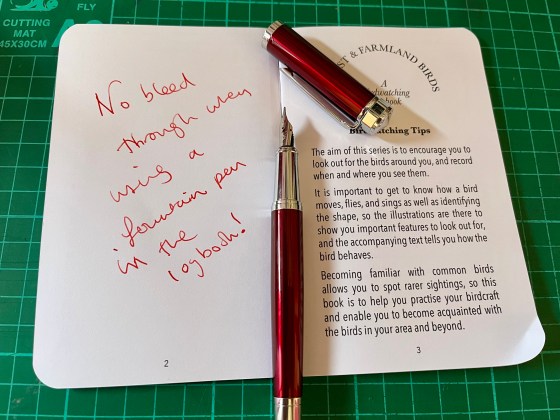 FLY
CUTTING
MAT
45X30CM
No bleed
through when
using a
fountain pen
in the
logbook!
2
ST & FARMLAND BIRDS
A
dwatching
book
Birdwatching Tips
The aim of this series is to encourage you to
look out for the birds around you, and record
when and where you see them.
It is important to get to know how a bird
moves, flies, and sings as well as identifying
the shape, so the illustrations are there to
show you important features to look out for,
and the accompanying text tells you how the
bird behaves.
Becoming familiar with common birds
allows you to spot rarer sightings, so this
book is to help you practise your birdcraft
and enable you to become acquainted with
the birds in your area and beyond.
3